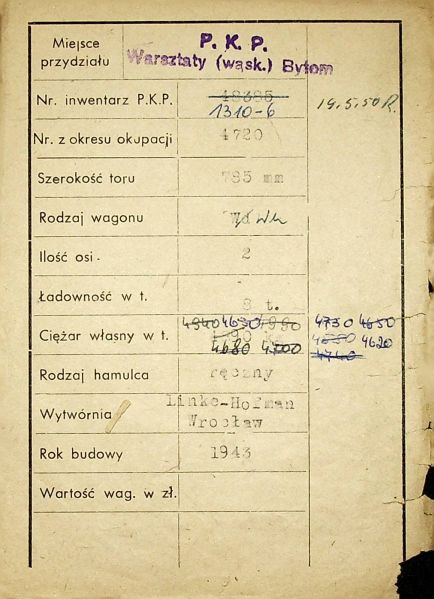 Miejsce przydziału P. K. P.
Warsztaty (wąsk.) Bytom
Nr. inwentarz P.K.P. 48385
1310-6 19.5.50 R.
Nr. z okresu okupacji 4720
Szerokość toru 785 mm
Rodzaj wagonu Wd Wh
Ilość osi - 2
Ładowność w t. 8 t.
Ciężar własny w t. 4940 4690 4730 4650
4680 4700 4620
4740
Rodzaj hamulca ręczny
Wytwórnia Linke-Hofman
Wrocław
Rok budowy 1943
Wartość wag. w zł.